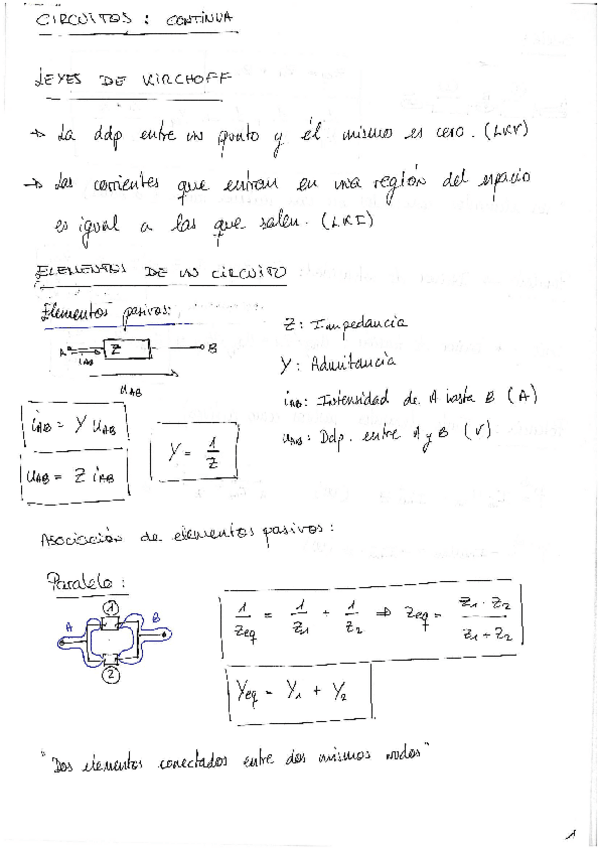 CIRCUITOS : CONTINUA
LEYES DE KIRCHOFF
→ La ddp entre un punto y él mismo es cero. (LKV)
→ Las corrientes que entran en una región del espacio
es igual a las que salen. (LKI)
ELEMENTOS DE UN CIRCUITO
Elementos pasivos:
Z: Impedancia
A Z B
i_AB
Y: Admitancia
U_AB
i_AB: Intensidad de A hasta B (A)
i_AB = Y U_AB
Y = 1/Z
U_AB: Ddp. entre A y B (V)
U_AB = Z i_AB
Asociación de elementos pasivos:
Paralelo:
A 1 B
2
1/Z_eq = 1/Z_1 + 1/Z_2 ⇒ Z_eq = Z_1 · Z_2 / Z_1 + Z_2
Y_eq = Y_1 + Y_2
"Dos elementos conectados entre dos mismos nodos"
1